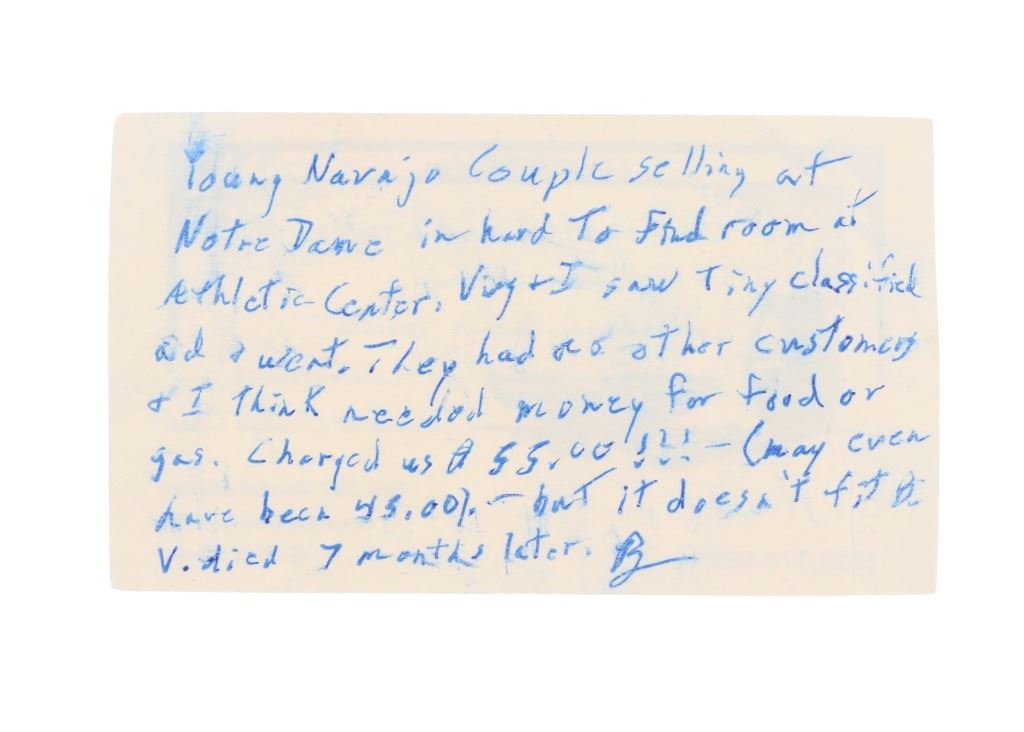 Young Navajo Couple selling at
Notre Dame in hard To Find room at
Athletic Center. Virg & I saw Tiny classified
ad & went. They had no other customers
& I Think needed money for food or
gas. Charged us $55.00 !!! – (may even
have been 45.00). – but it doesn't fit
V. died 7 months later. B